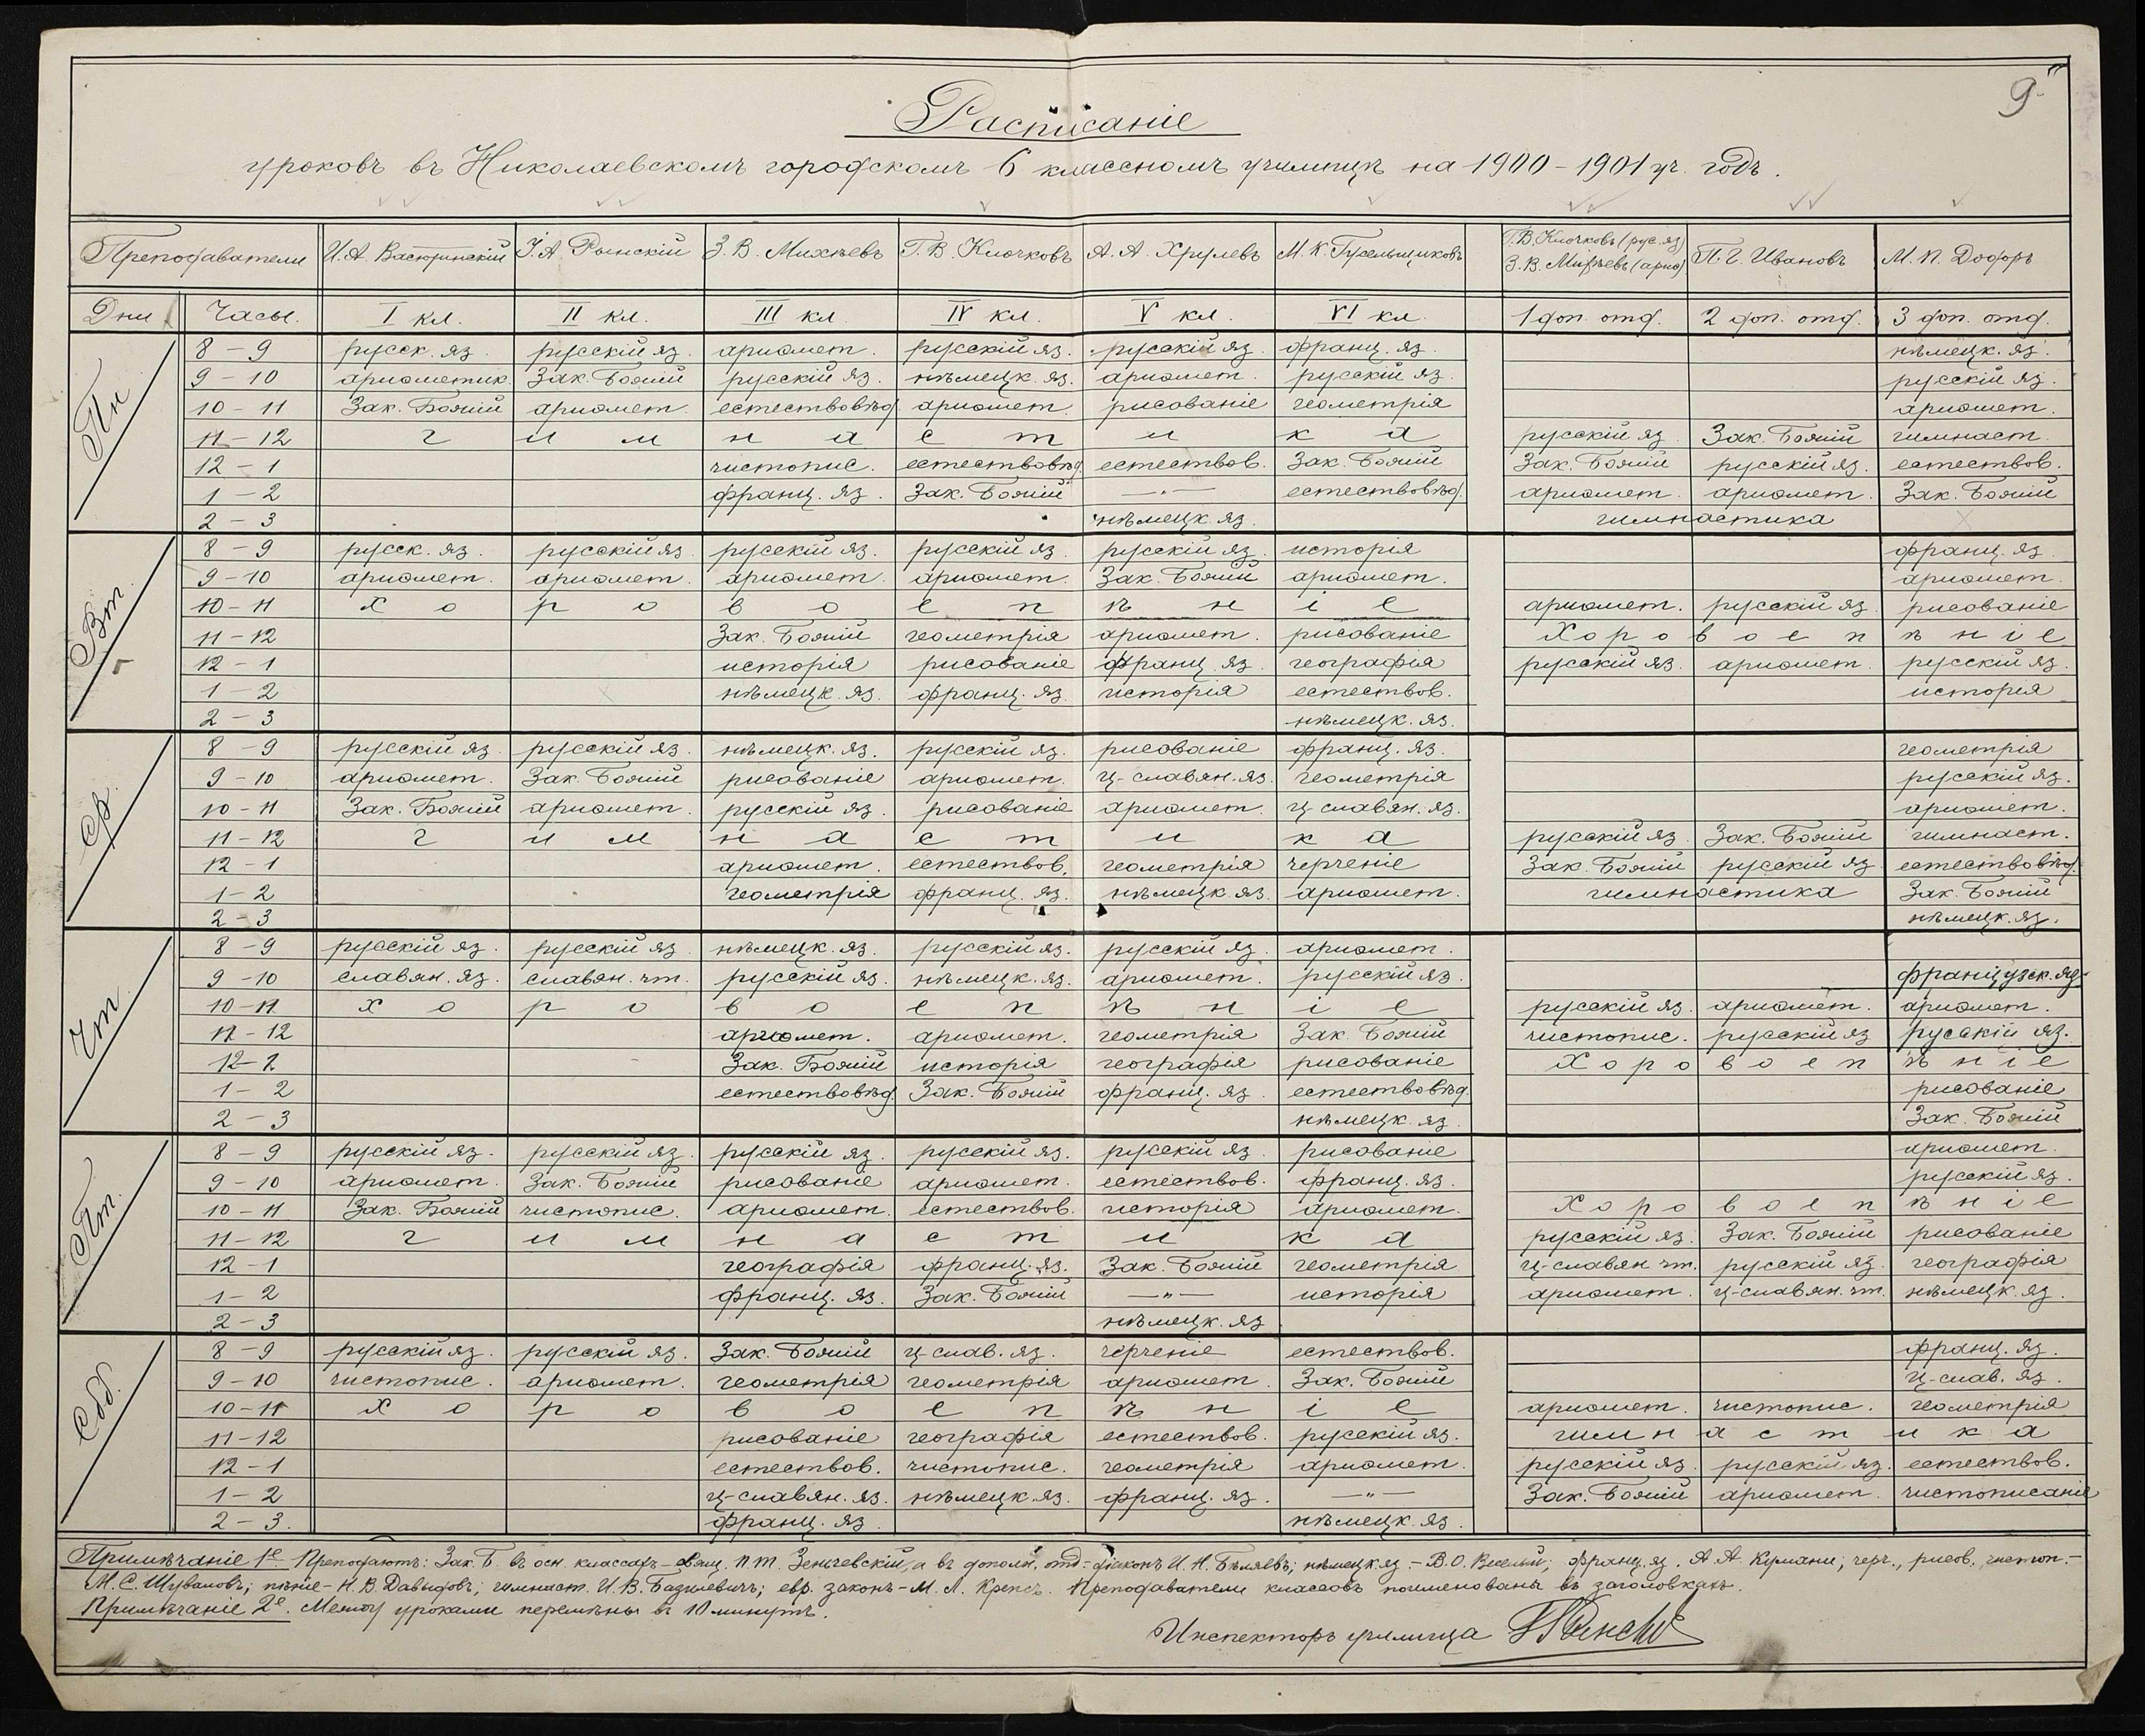 9
Расписаніе
уроковъ въ Николаевскомъ городскомъ 6 классномъ училищѣ на 1900-1901 уч. годъ.
Преподаватели И. А. Васютинскій І. А. Рынскій З. В. Михѣевъ Г. В. Клочковъ А. А. Хрулевъ М. К. Гусельщиковъ Г. В. Клочковъ (рус. яз) З. В. Михѣевъ (ариѳ) П. Г. Ивановъ М. П.
Дни Часы. I кл. II кл. III кл IV кл. V кл. VI кл. 1 доп. отд. 2 доп. отд. 3 доп. отд.
Пн
8-9 русск. яз. русскій яз. ариѳмет. русскій яз. русскій яз. франц. яз. нѣмецк. яз.
9-10 ариѳметик. Зак. Божій русскій яз. нѣмецк. яз. ариѳмет. русскій яз. русскій яз.
10-11 Зак. Божій ариѳмет. естествовѣд. ариѳмет. рисованіе геометрія ариѳмет.
11-12 г и м н а с т и к а русскій яз. Зак. Божій гимнаст.
12-1 чистопис. естествовѣд. естествов. Зак. Божій Зак. Божій русскій яз. естествов.
1-2 франц. яз. Зак. Божій —"— естествовѣд. ариѳмет. ариѳмет. Зак. Божій
2-3 нѣмецк. яз. гимнастика
Вт.
8-9 русск. яз. русскій яз. русскій яз. русскій яз. русскій яз. исторія франц. яз.
9-10 ариѳмет. ариѳмет. ариѳмет. ариѳмет. Зак. Божій ариѳмет. ариѳмет.
10-11 х о р о в о е п ѣ н і е ариѳмет. русскій яз. рисованіе
11-12 Зак. Божій геометрія ариѳмет. рисованіе Х о р о в о е п ѣ н і е
12-1 исторія рисованіе франц. яз. географія русскій яз. ариѳмет. русскій яз.
1-2 нѣмецк. яз. франц. яз. исторія естествов. исторія
2-3 нѣмецк. яз.
Ср.
8-9 русскій яз. русскій яз. нѣмецк. яз. русскій яз. рисованіе франц. яз. геометрія
9-10 ариѳмет. Зак. Божій рисованіе ариѳмет. ц-славян. яз. геометрія русскій яз.
10-11 Зак. Божій ариѳмет. русскій яз. рисованіе ариѳмет. ц славян. яз. ариѳмет.
11-12 г и м н а с т и к а русскій яз. Зак. Божій гимнаст.
12-1 ариѳмет. естествов. геометрія черченіе Зак. Божій русскій яз. естествовѣд.
1-2 геометрія франц. яз. нѣмецк. яз. ариѳмет. гимнастика Зак. Божій
2-3 нѣмецк. яз.
Чт.
8-9 русскій яз. русскій яз. нѣмецк. яз. русскій яз. русскій яз. ариѳмет.
9-10 славян. яз. славян. чт. русскій яз. нѣмецк. яз. ариѳмет. русскій яз. французск. яз.
10-11 х о р о в о е п ѣ н і е русскій яз. ариѳмет. ариѳмет.
11-12 ариѳмет. ариѳмет. геометрія Зак. Божій чистопис. русскій яз. русскій яз.
12-1 Зак. Божій исторія географія рисованіе Х о р о в о е п ѣ н і е
1-2 естествовѣд. Зак. Божій франц. яз. естествовѣд. рисованіе
2-3 нѣмецк. яз. Зак. Божій
Пт.
8-9 русскій яз. русскій яз. русскій яз. русскій яз. русскій яз. рисованіе ариѳмет.
9-10 ариѳмет. Зак. Божій рисованіе ариѳмет. естествов. франц. яз. русскій яз.
10-11 Зак. Божій чистопис. ариѳмет. естествов. исторія ариѳмет. Х о р о в о е п ѣ н і е
11-12 г и м н а с т и к а русскій яз. Зак. Божій рисованіе
12-1 географія франц. яз. Зак. Божій геометрія ц-славян чт. русскій яз. географія
1-2 франц. яз. Зак. Божій —"— исторія ариѳмет. ц-славян. чт. нѣмецк. яз.
2-3 нѣмецк. яз
Сбб.
8-9 русскій яз. русскій яз. Зак. Божій ц-слав. яз. черченіе естествов. франц. яз.
9-10 чистопис. ариѳмет. геометрія геометрія ариѳмет. Зак. Божій ц-слав. яз.
10-11 х о р о в о е п ѣ н і е ариѳмет. чистопис. геометрія
11-12 рисованіе географія естествов. русскій яз. г и м н а с т и к а
12-1 естествов. чистопис. геометрія ариѳмет. русскій яз. русскій яз. естествов.
1-2 ц-славян. яз. нѣмецк яз. франц. яз. —"— Зак. Божій ариѳмет. чистописаніе
2-3. франц. яз. нѣмецк. яз.
Примѣчаніе 1е Преподаютъ: Зак. Б. въ осн. классахъ – свящ. П. Т. Зеньчевскій, а въ дополн. отд – діаконъ И. Н. Бѣляевъ; нѣмецк яз. – В. О. Веселый; франц. яз. А. А. Кумани; черч., рисов. чистоп. –
М. С. Шуваловъ; пѣніе – Н. В. Давыдовъ; гимнаст. И. В. Базилевичъ; евр. законъ – М. Л. Крепсъ. Преподаватели классовъ поименованы въ заголовкахъ.
Примѣчаніе 2е. Между уроками перемѣны въ 10 минутъ.
Инспекторъ училища